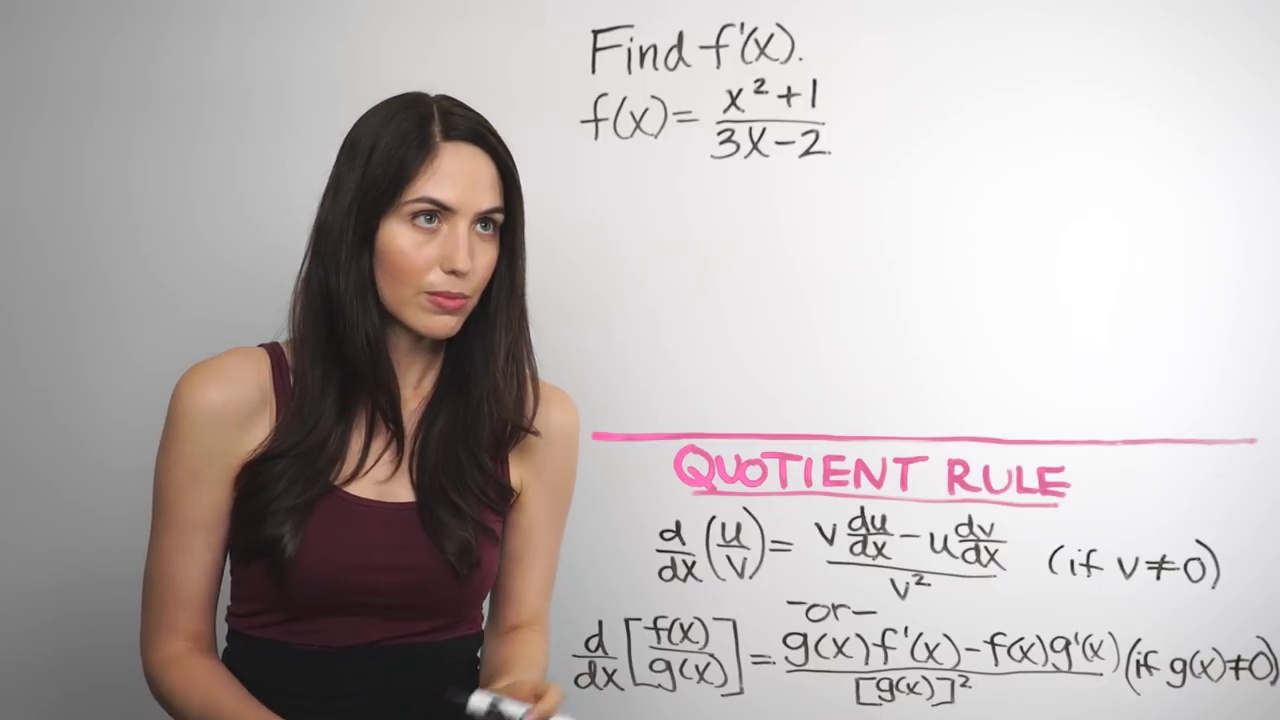 Find f'(x).
f(x) = x² + 1 / 3x - 2
QUOTIENT RULE
d/dx (u/v) = v du/dx - u dv/dx / v² (if v ≠ 0)
-or-
d/dx [f(x)/g(x)] = g(x)f'(x) - f(x)g'(x) / [g(x)]² (if g(x) ≠ 0)